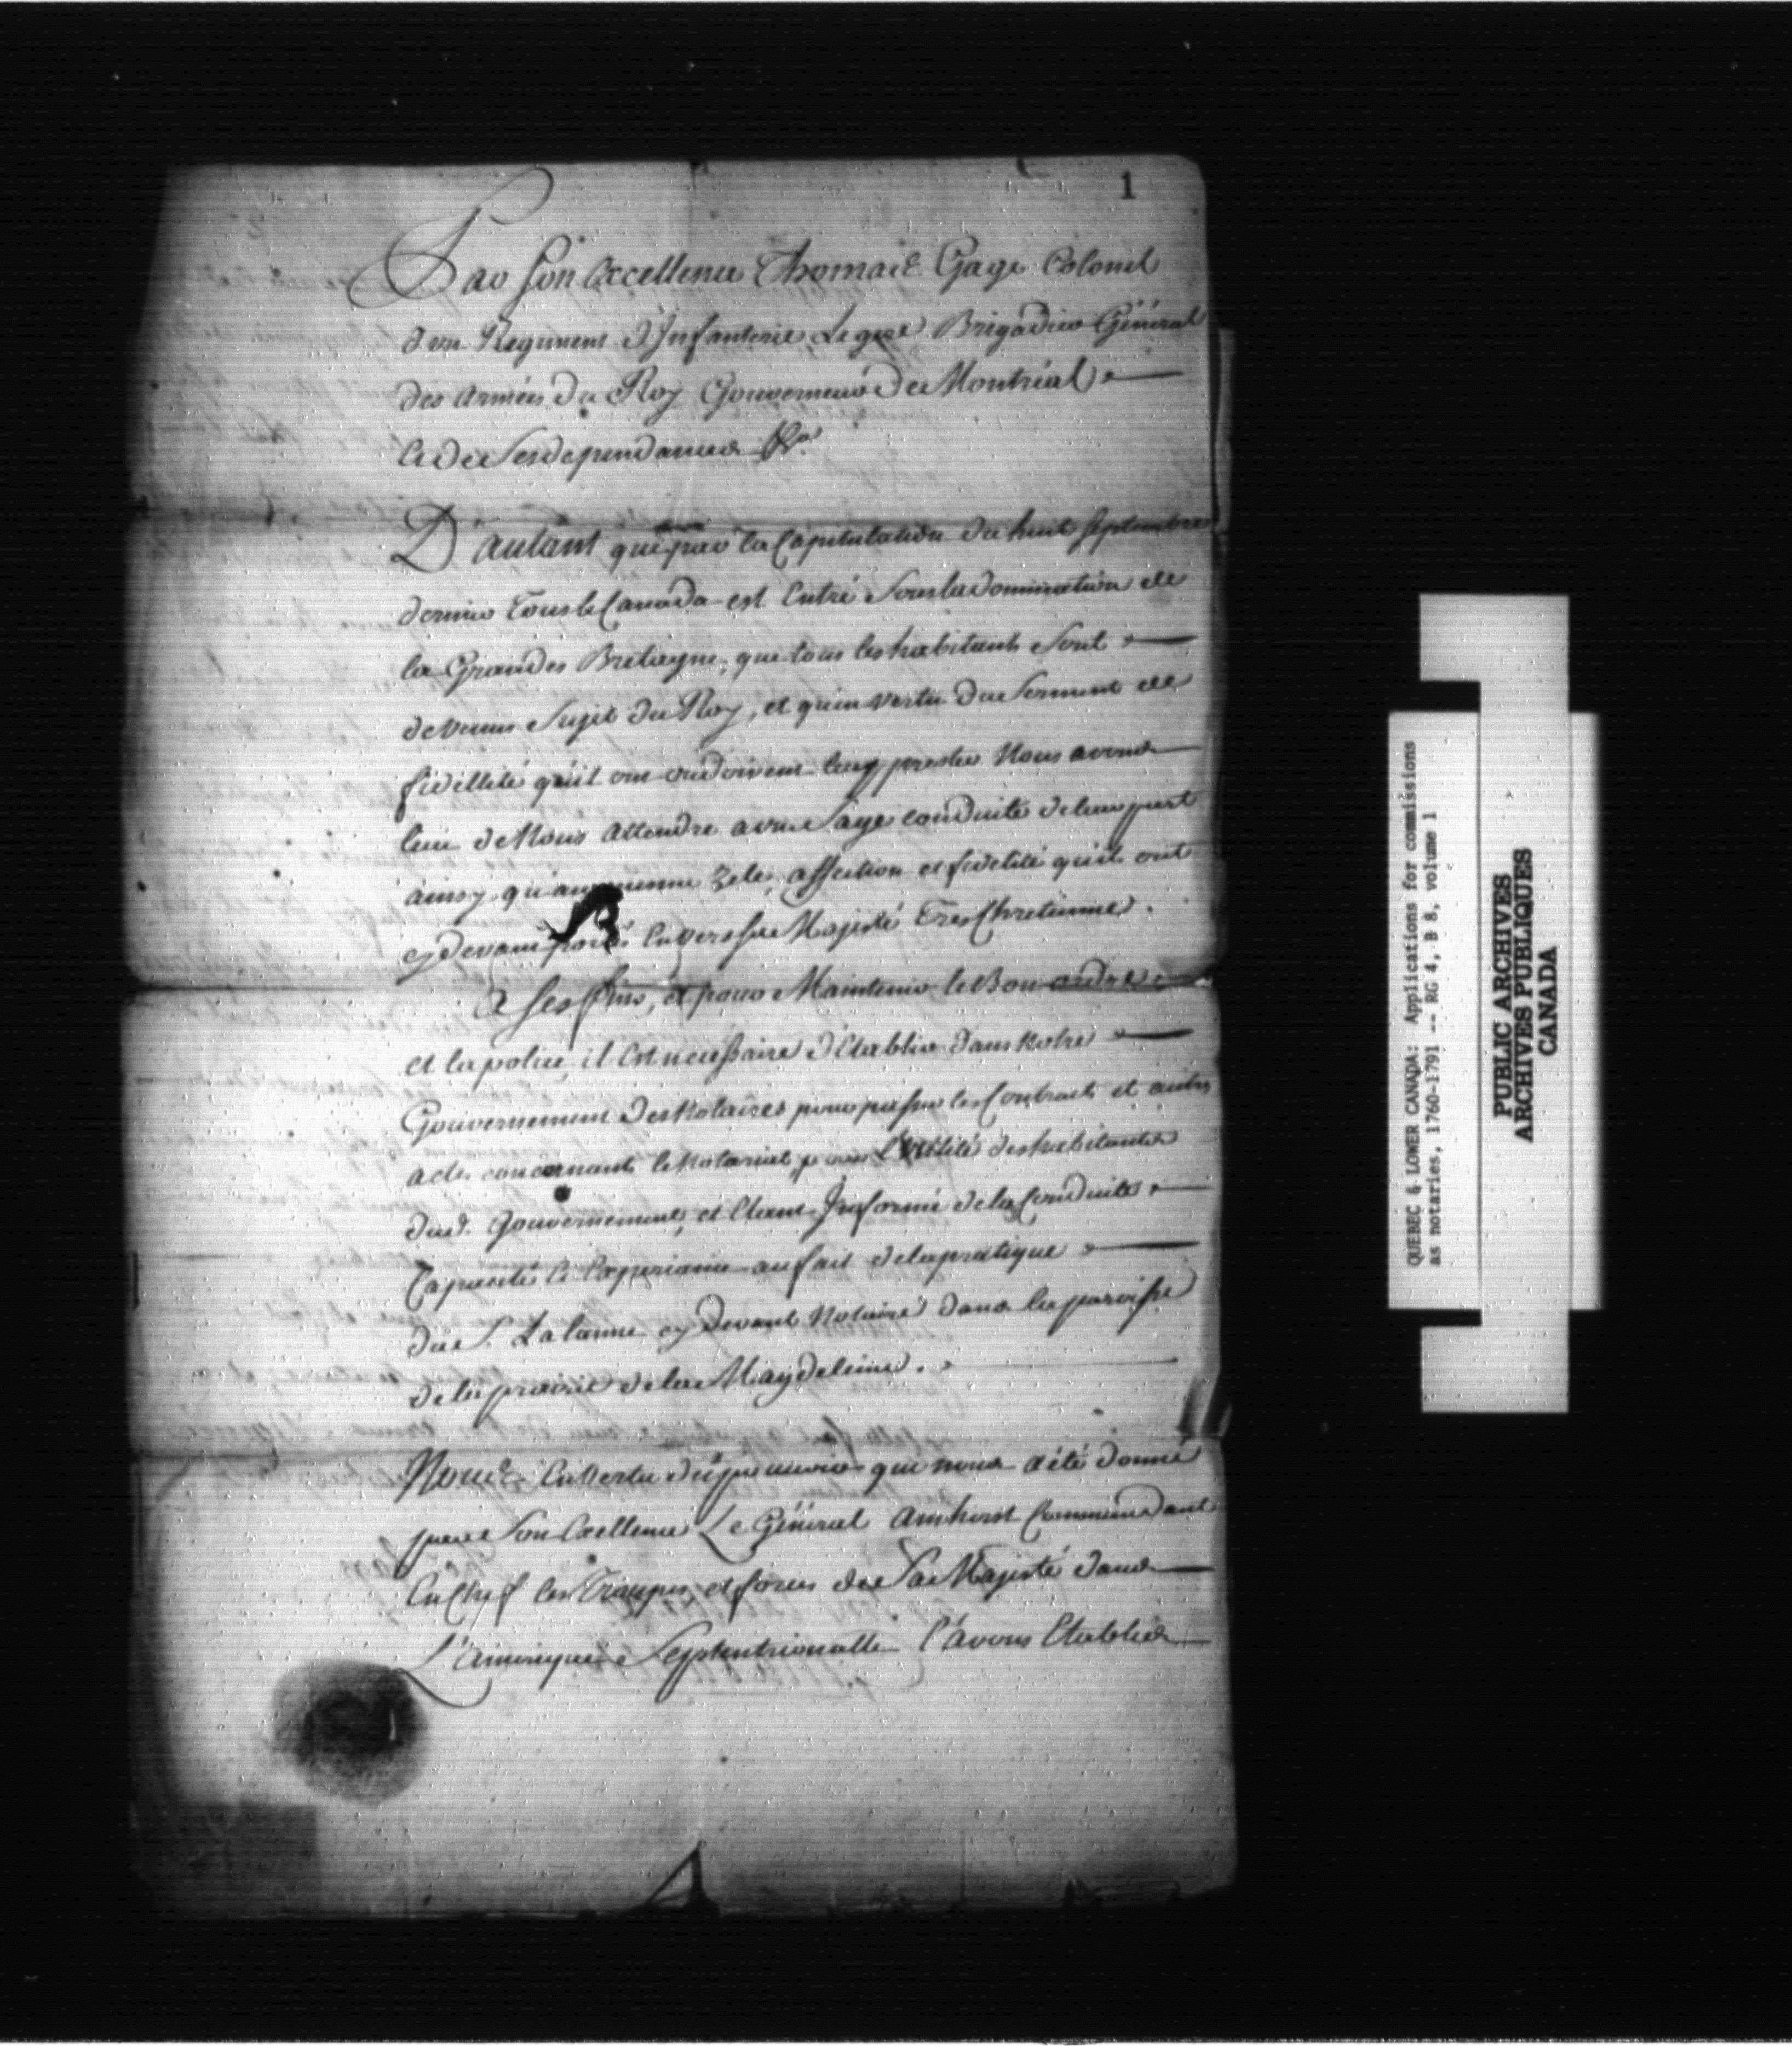 1
Par Son Excellence Thomas Gage Colonel
d'un Regiment d'Infanterie Legere Brigadier Général
des armées du Roy Gouverneur de Montréal
et de ses dependances &ca
D'autant que par la Capitulation du huit septembre
dernier tous le Canada est Entré sous la domination de
la Grandes Bretagne, que tous les habitants sont
devenus sujet du Roy, et qu'en vertu du serment de
fidellité qu'il ont ou doivent prester Nous avons
lieu de Nous attendre a une sage conduite de leur part
ainsy qu'au meme zele, affection et fidelité qu'il ont
cy devant portés Envers sa Majesté Tres Chretienne.
A ses fins, et pour Maintenir le Bon ordre
et la police, il est necessaire d'Etablir dans Notre
Gouvernement des Notaires pour passer les Contracts et autres
actes concernant le Notariat pour l'utilité des habitants
dud. Gouvernement, et Etant Informé de la Conduite
Capacité et Experiance au fait de la pratique
du S. Lalanne cy devant Notaire dans la paroisse
de la prairie de la Magdeleine.
Nous En Vertu du pouvoir qui nous a été donné
par Son Excellence Le Général Amherst Commandant
En Chef les Troupes, et forces de Sa Majesté dans
L'Amerique Septentrionalle l'avons Etablie
QUEBEC & LOWER CANADA: Applications for commissions
as notaries, 1760-1791 -- RG 4, B 8, volume 1
PUBLIC ARCHIVES
ARCHIVES PUBLIQUES
CANADA